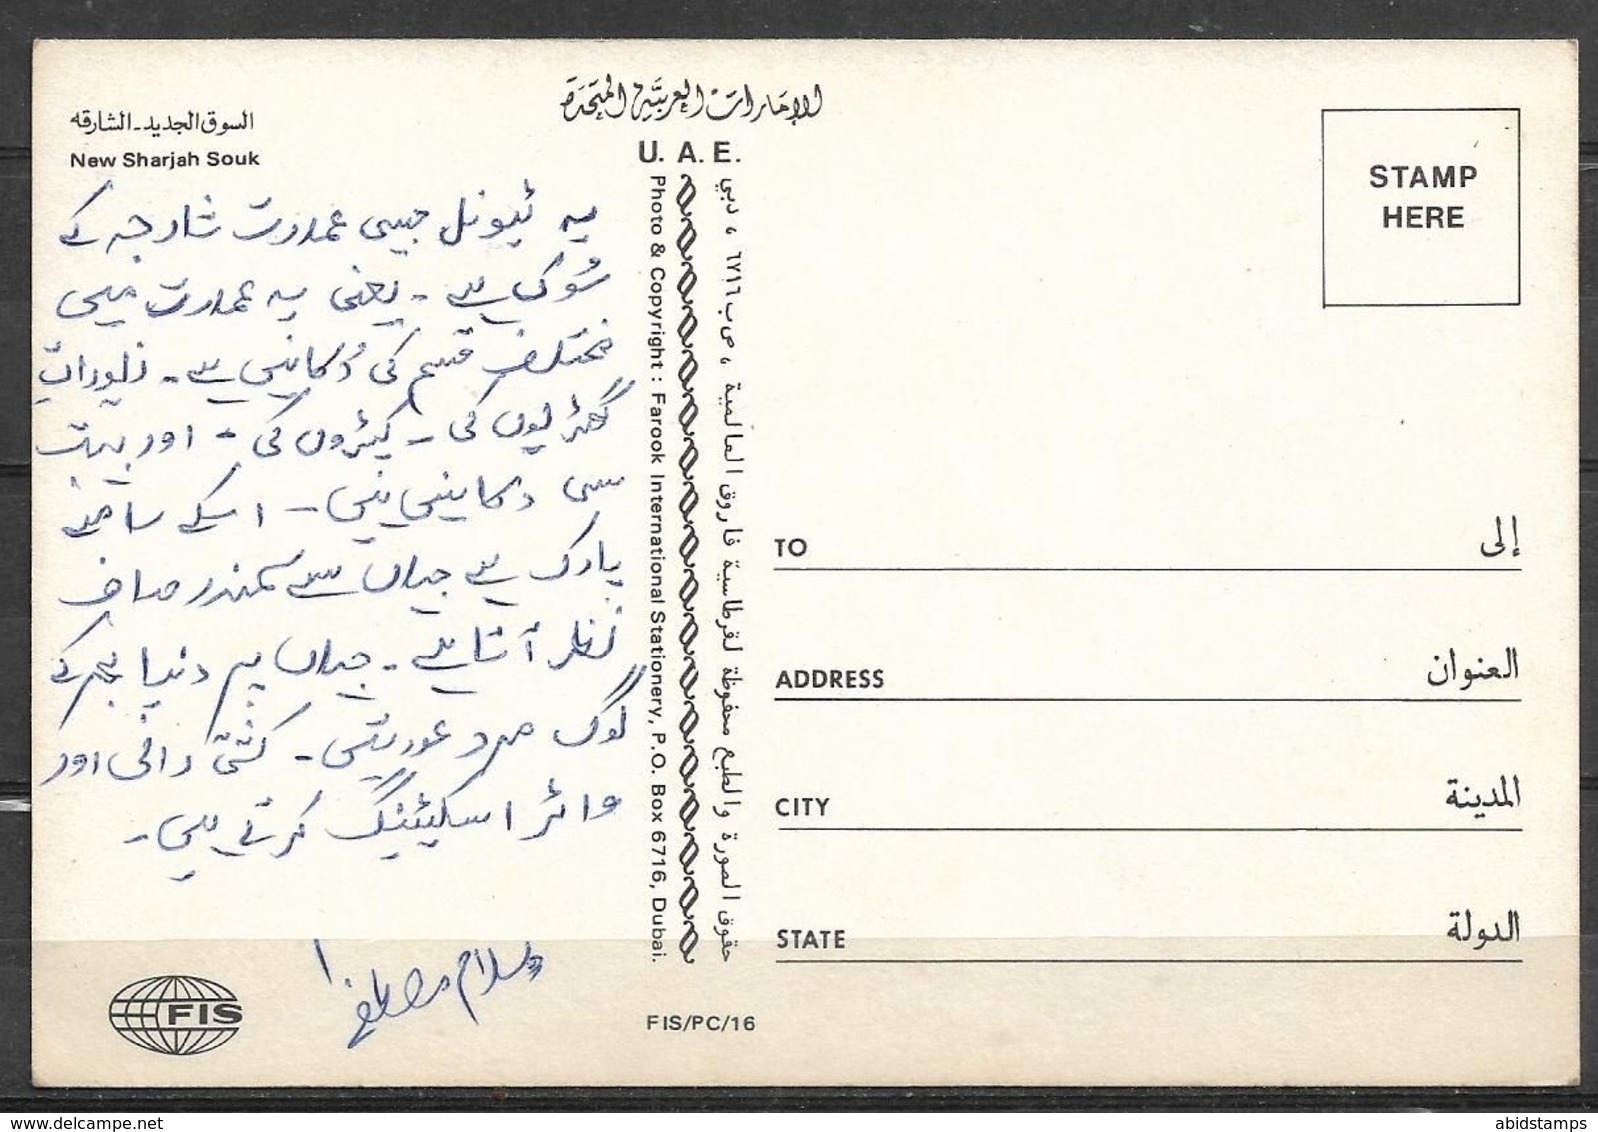 الإمارات العربية المتحدة
U. A. E.
السوق الجديد - الشارقه
New Sharjah Souk
یہ ٹیونل جیسی عمارت شارجہ کے
سُوک ہے - یعنی یہ عمارت میں
مختلف قسم کی دُکانیں ہے - زیورات
گھڑیوں کی - کپڑوں کی - اور بہت
سی دکانیں ہیں - اسکے سامنے
پارک ہے جہاں سے سمندر صاف
نظر آتا ہے - جہاں پر دنیا بھر کے
لوگ مرد عورتیں - کشتی رانی اور
واٹر اسکیئنگ کرتے ہیں -
وسلام مصطفےٰ
FIS
Photo & Copyright : Farook International Stationery, P.O. Box 6716, Dubai.
حقوق الصورة والطبع محفوظة لقرطاسية فاروق العالمية ، ص ب ٦٧١٦ ، دبي
FIS/PC/16
STAMP
HERE
TO إلى
ADDRESS العنوان
CITY المدينة
STATE الدولة
abidstamps